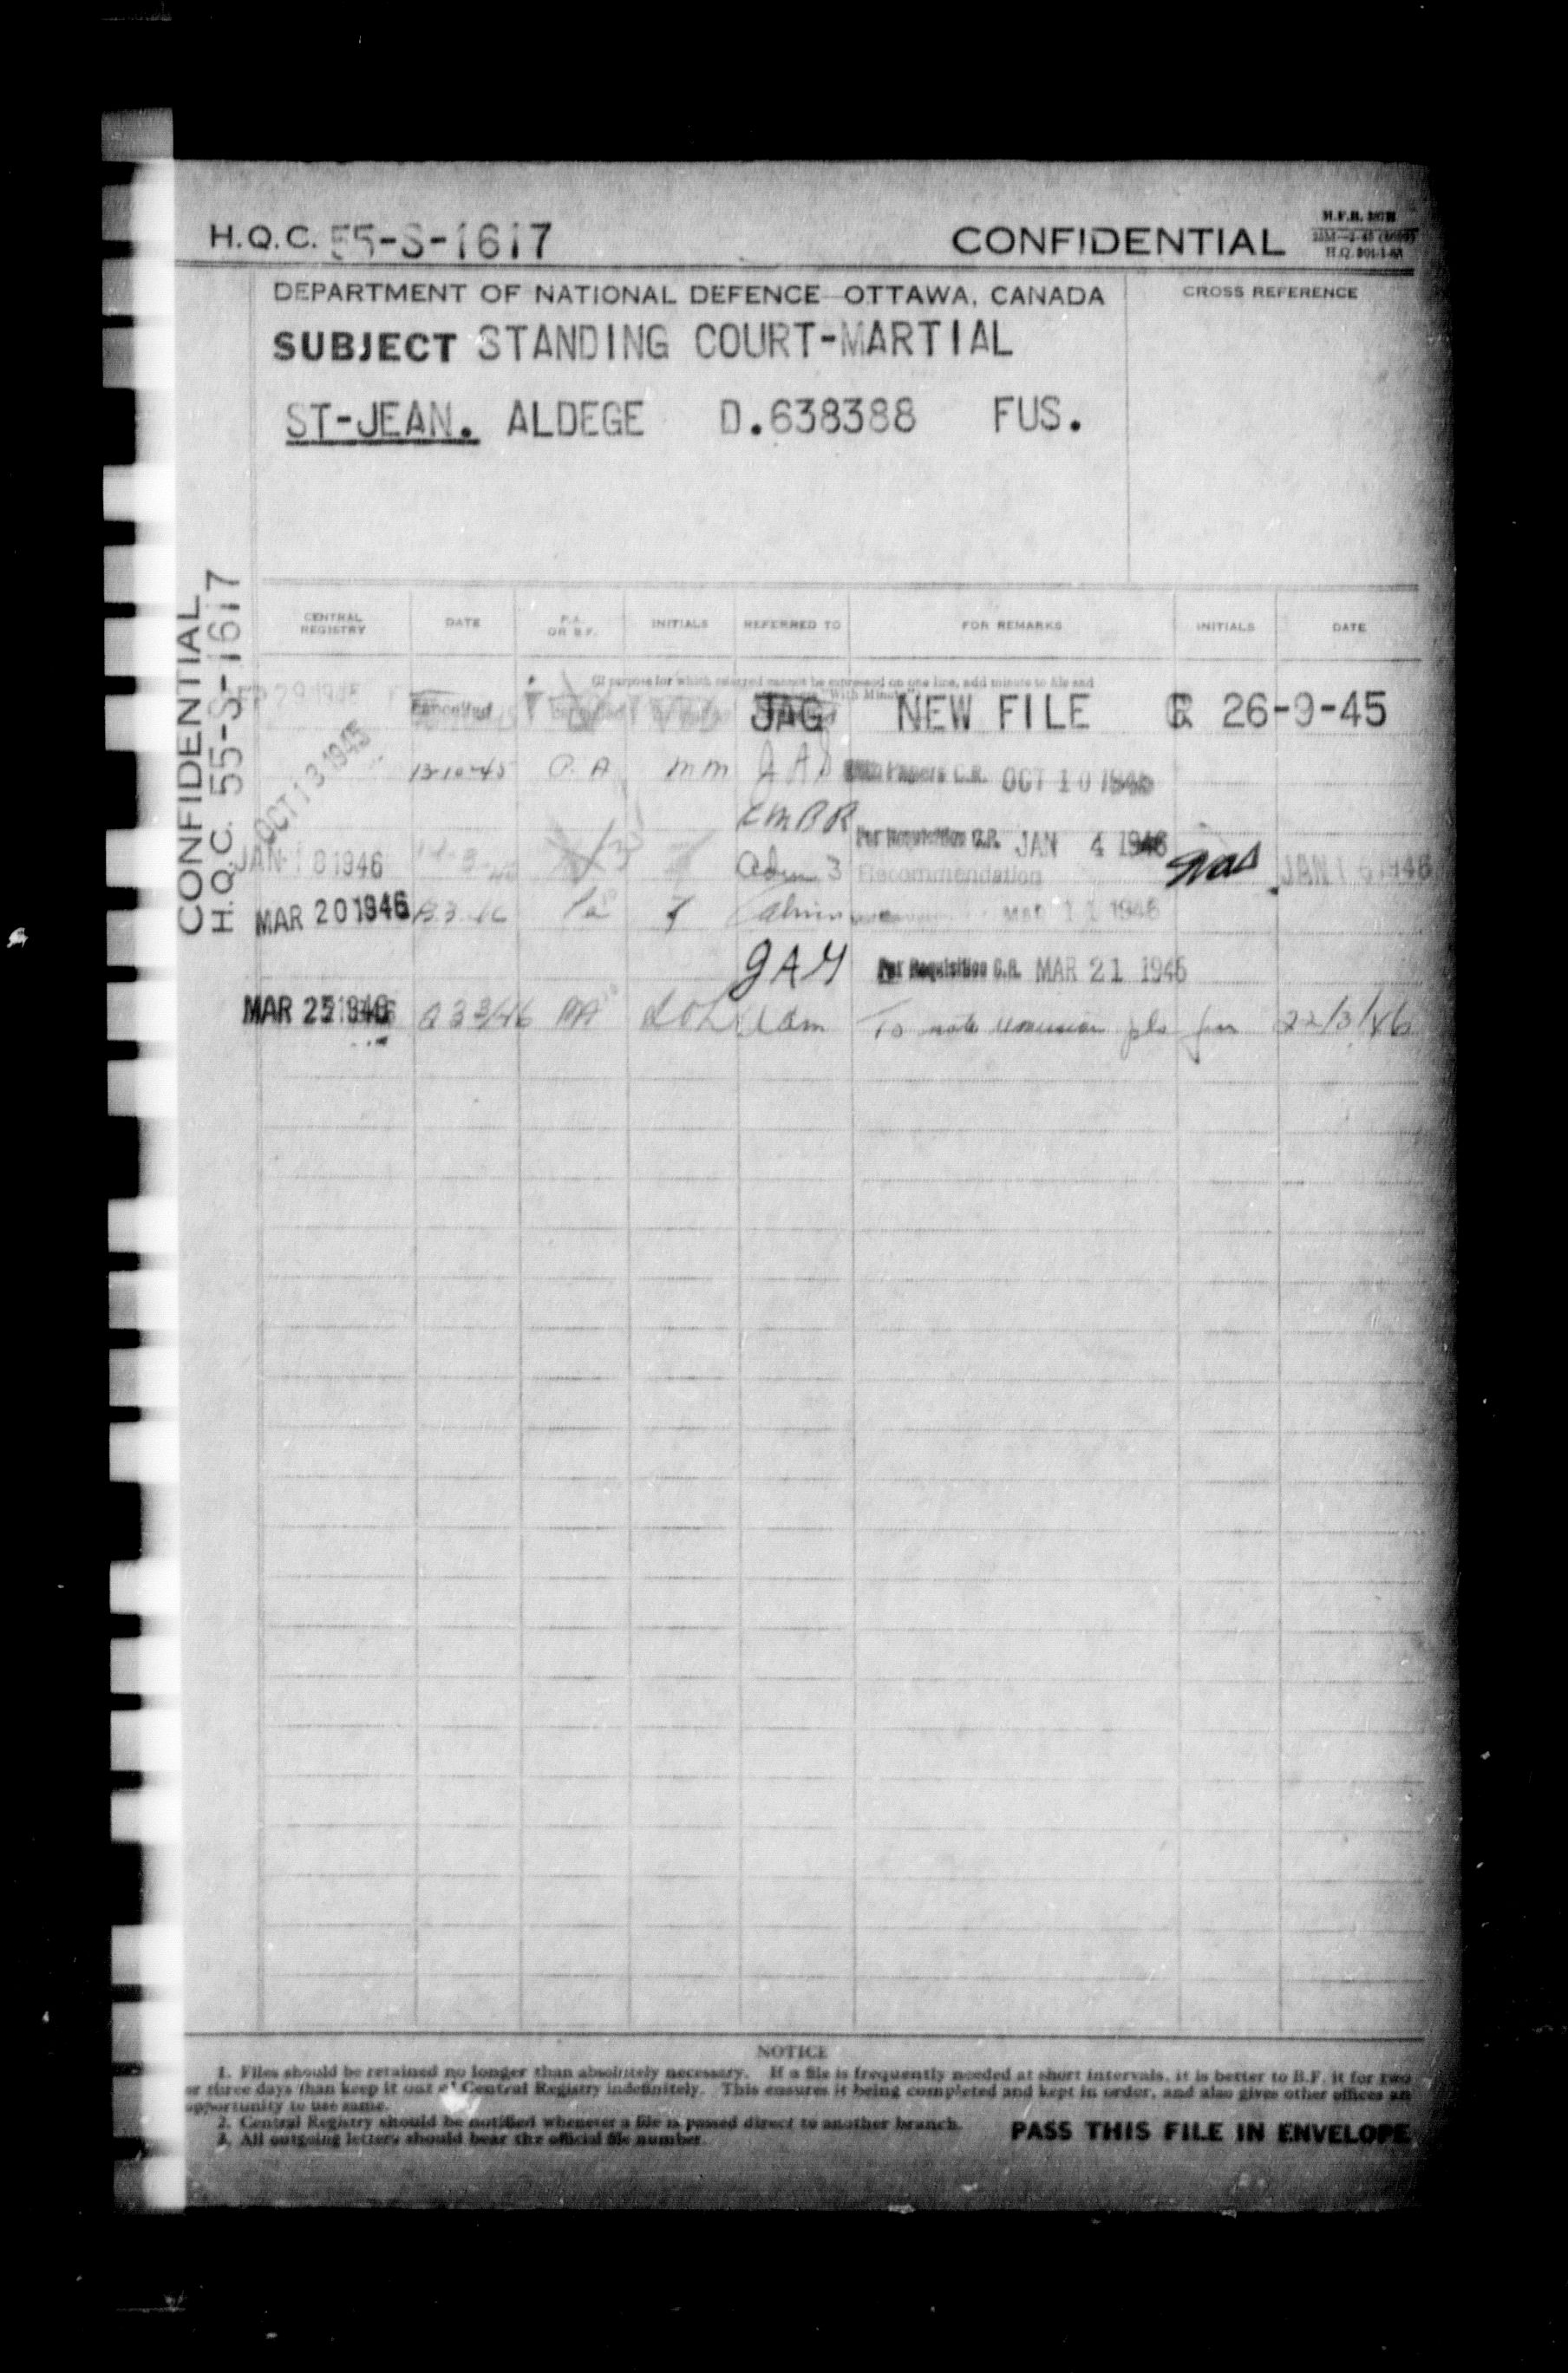 H.Q.C. 55-S-1617 CONFIDENTIAL
DEPARTMENT OF NATIONAL DEFENCE OTTAWA, CANADA
CROSS REFERENCE
SUBJECT STANDING COURT-MARTIAL
ST-JEAN. ALDEGE D.638388 FUS.
CONFIDENTIAL
H.Q.C. 55-S-1617
CENTRAL REGISTRY DATE P.A. OR B.F. INITIALS REFERRED TO FOR REMARKS INITIALS DATE
(If purpose for which referred cannot be expressed on one line, add minute to file and
"With Minute")
SEP 29 1945 Cancelled JAG NEW FILE CR 26-9-45
OCT 13 1945 13-10-45 P.A mm Papers C.R. OCT 10 1945
CMBR Per Requisition C.R. JAN 4 1946
JAN 18 1946 Adm 3 Recommendation JAN 16 1946
MAR 20 1946 Pa Admin MAR 11 1946
JAG Per Requisition C.R. MAR 21 1946
MAR 25 1946 PA Adm To note remission pls 22/3/46
NOTICE
1. Files should be retained no longer than absolutely necessary. If a file is frequently needed at short intervals, it is better to B.F. it for two
or three days than keep it out of Central Registry indefinitely. This ensures it being completed and kept in order, and also gives other offices an
opportunity to use same.
2. Central Registry should be notified whenever a file is passed direct to another branch.
3. All outgoing letters should bear the official file number.
PASS THIS FILE IN ENVELOPE